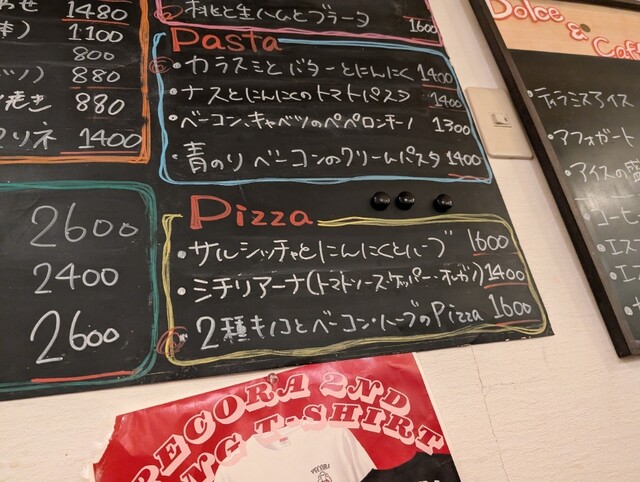 せ 1480
1100
800
ツ) 880
焼き 880
リネ 1400
2600
2400
2600
桃と生ハムとブラータ 1600
Pasta
・カラスミとバターとにんにく 1400
・ナスとにんにくのトマトパスタ 1400
・ベーコン、キャベツのペペロンチーノ 1300
・青のりベーコンのクリームパスタ 1400
Pizza
・サルシッチャとにんにくとハーブ 1600
・ミチリアーナ(トマトソース・ケッパー・オレガノ) 1400
・2種キノコとベーコン・ハーブのPizza 1600
Dolce & Caffe
・ティラミスアイス
・アフォガート
・アイスの盛
・コーヒ
・エス
・エ
PECORA 2ND
NG T-SHIRT
PECORA